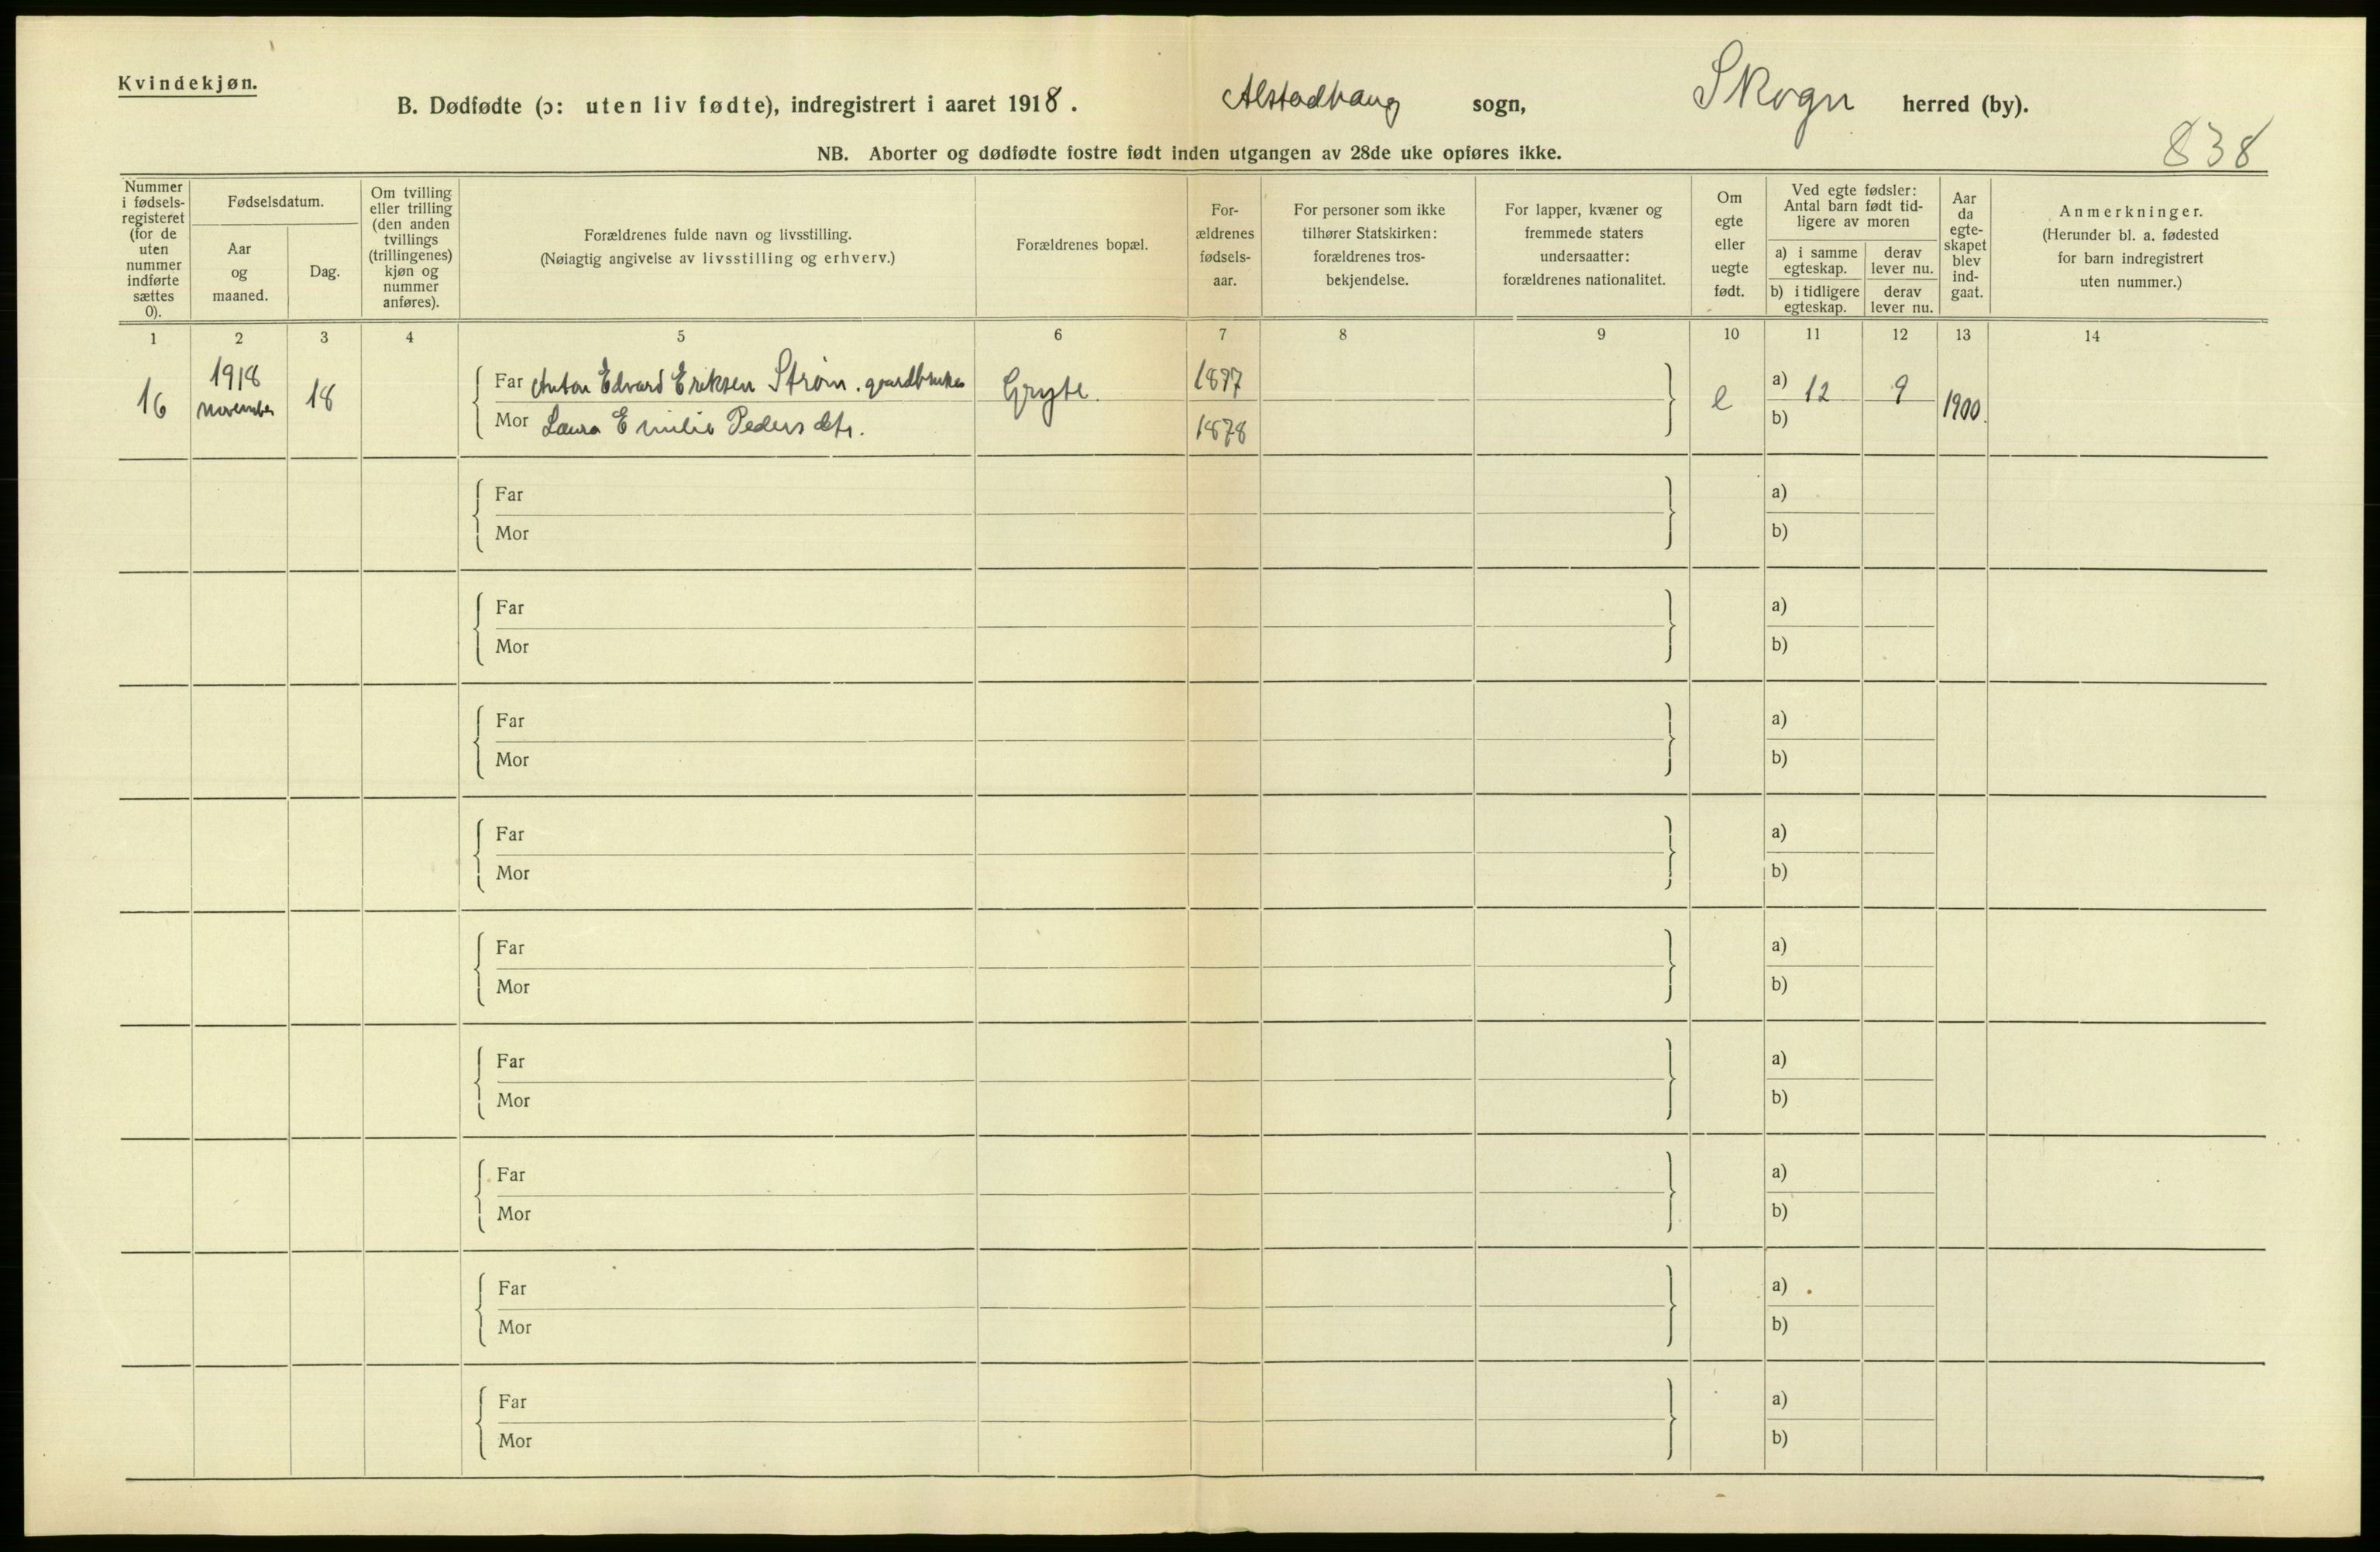 Kvindekjøn.
B. Dødfødte (ɔ: uten liv fødte), indregistrert i aaret 1918. Alstadhaug sogn, Skogn herred (by).
NB. Aborter og dødfødte fostre født inden utgangen av 28de uke opføres ikke.
838
Nummer
i fødsels-
registeret
(for de
uten
nummer
indførte
sættes
0).
Fødselsdatum.
Aar
og
maaned.
Dag.
Om tvilling
eller trilling
(den anden
tvillings
(trillingenes)
kjøn og
nummer
anføres).
Forældrenes fulde navn og livsstilling.
(Nøiagtig angivelse av livsstilling og erhverv.)
Forældrenes bopæl.
For-
ældrenes
fødsels-
aar.
For personer som ikke
tilhører Statskirken:
forældrenes tros-
bekjendelse.
For lapper, kvæner og
fremmede staters
undersaatter:
forældrenes nationalitet.
Om
egte
eller
uegte
født.
Ved egte fødsler:
Antal barn født tid-
ligere av moren
a) i samme
egteskap.
derav
lever nu.
b) i tidligere
egteskap.
derav
lever nu.
Aar
da
egte-
skapet
blev
ind-
gaat.
Anmerkninger.
(Herunder bl. a. fødested
for barn indregistrert
uten nummer.)
1 2 3 4 5 6 7 8 9 10 11 12 13 14
16 1918 november 18
Far Anton Edvard Eriksen Strøm. gaardbruker Gryte. 1877
Mor Laura Emilie Pedersdtr. 1878
e a) 12 9 1900.
b)
Far a)
Mor b)
Far a)
Mor b)
Far a)
Mor b)
Far a)
Mor b)
Far a)
Mor b)
Far a)
Mor b)
Far a)
Mor b)
Far a)
Mor b)
Far a)
Mor b)